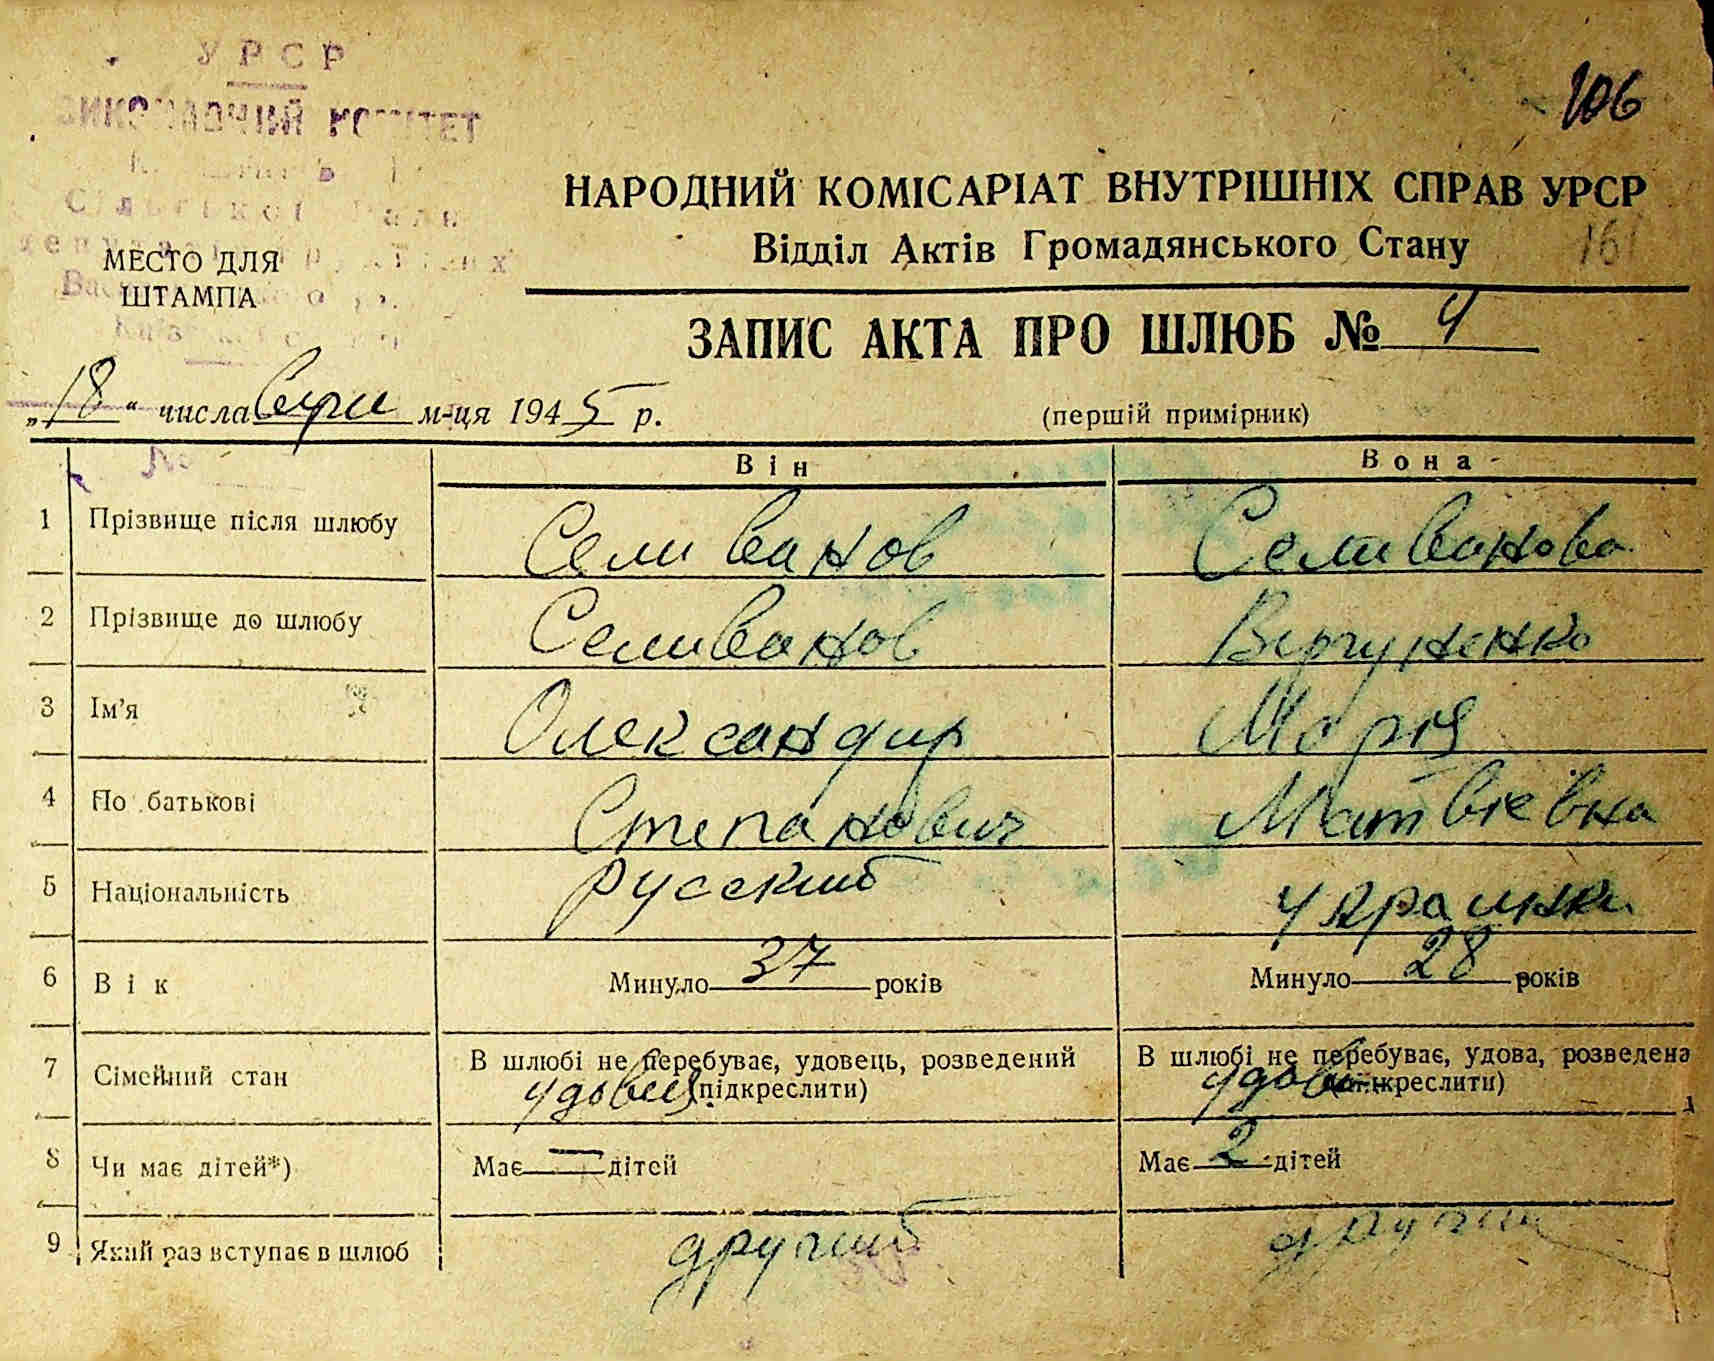 УРСР
ВИКОНАВЧИЙ КОМІТЕТ
Сільської Ради
106
НАРОДНИЙ КОМІСАРІАТ ВНУТРІШНІХ СПРАВ УРСР
Відділ Актів Громадянського Стану
161
МЕСТО ДЛЯ
ШТАМПА
ЗАПИС АКТА ПРО ШЛЮБ № 4
„18“ числа м-ця 1945 р.
(першій примірник)
№
Він Вона
1 Прізвище після шлюбу Селиванов Селиванова
2 Прізвище до шлюбу Селиванов Вергуненко
3 Ім'я Олександир Марія
4 По батькові Степанович Матвіевна
5 Національність русский украинка
6 Вік Минуло 37 років Минуло 28 років
7 Сімейний стан В шлюбі не перебуває, удовець, розведений В шлюбі не перебуває, удова, розведена
удовец (підкреслити) удова (підкреслити)
8 Чи має дітей*) Має — дітей Має 2 дітей
9 Який раз вступає в шлюб другий другий